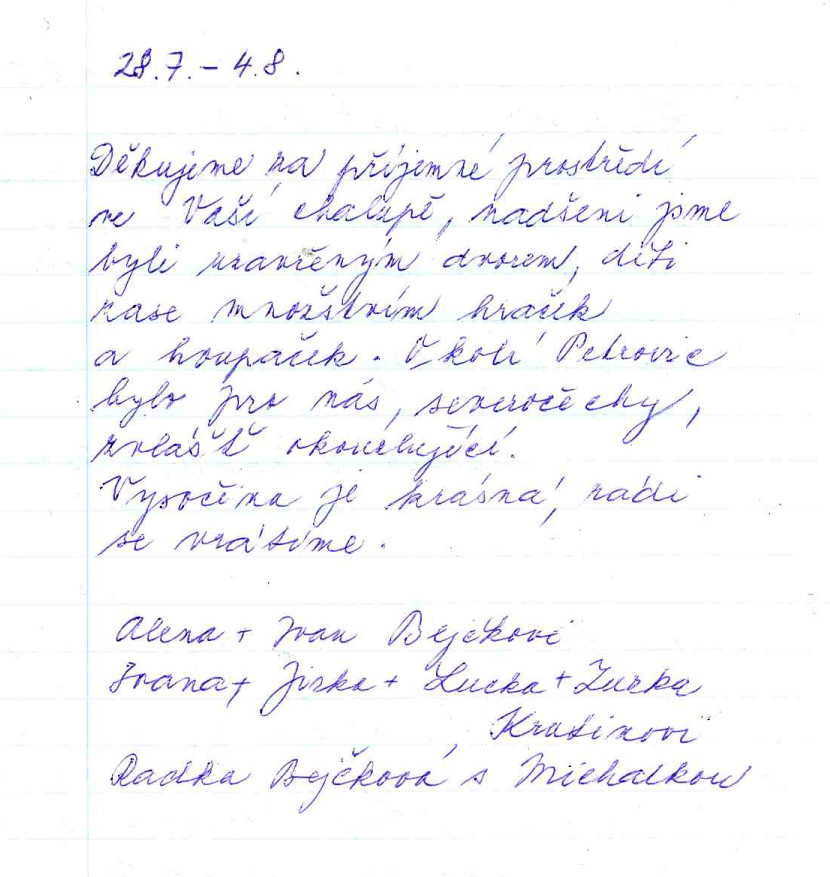 28.7. - 4.8.
Děkujeme za příjemné prostředí
ve Vaší chalupě, nadšeni jsme
byli uzavřeným dvorem, děti
zase množstvím hraček
a houpaček. Okolí Petrovic
bylo pro nás, severočechy,
zvlášť okouzlující.
Vysočina je krásná, rádi
se vrátíme.
Alena + Ivan Bejčkovi
Ivana + Jirka + Lucka + Zuzka
Krutinovi
Radka Bejčková s Michalkou